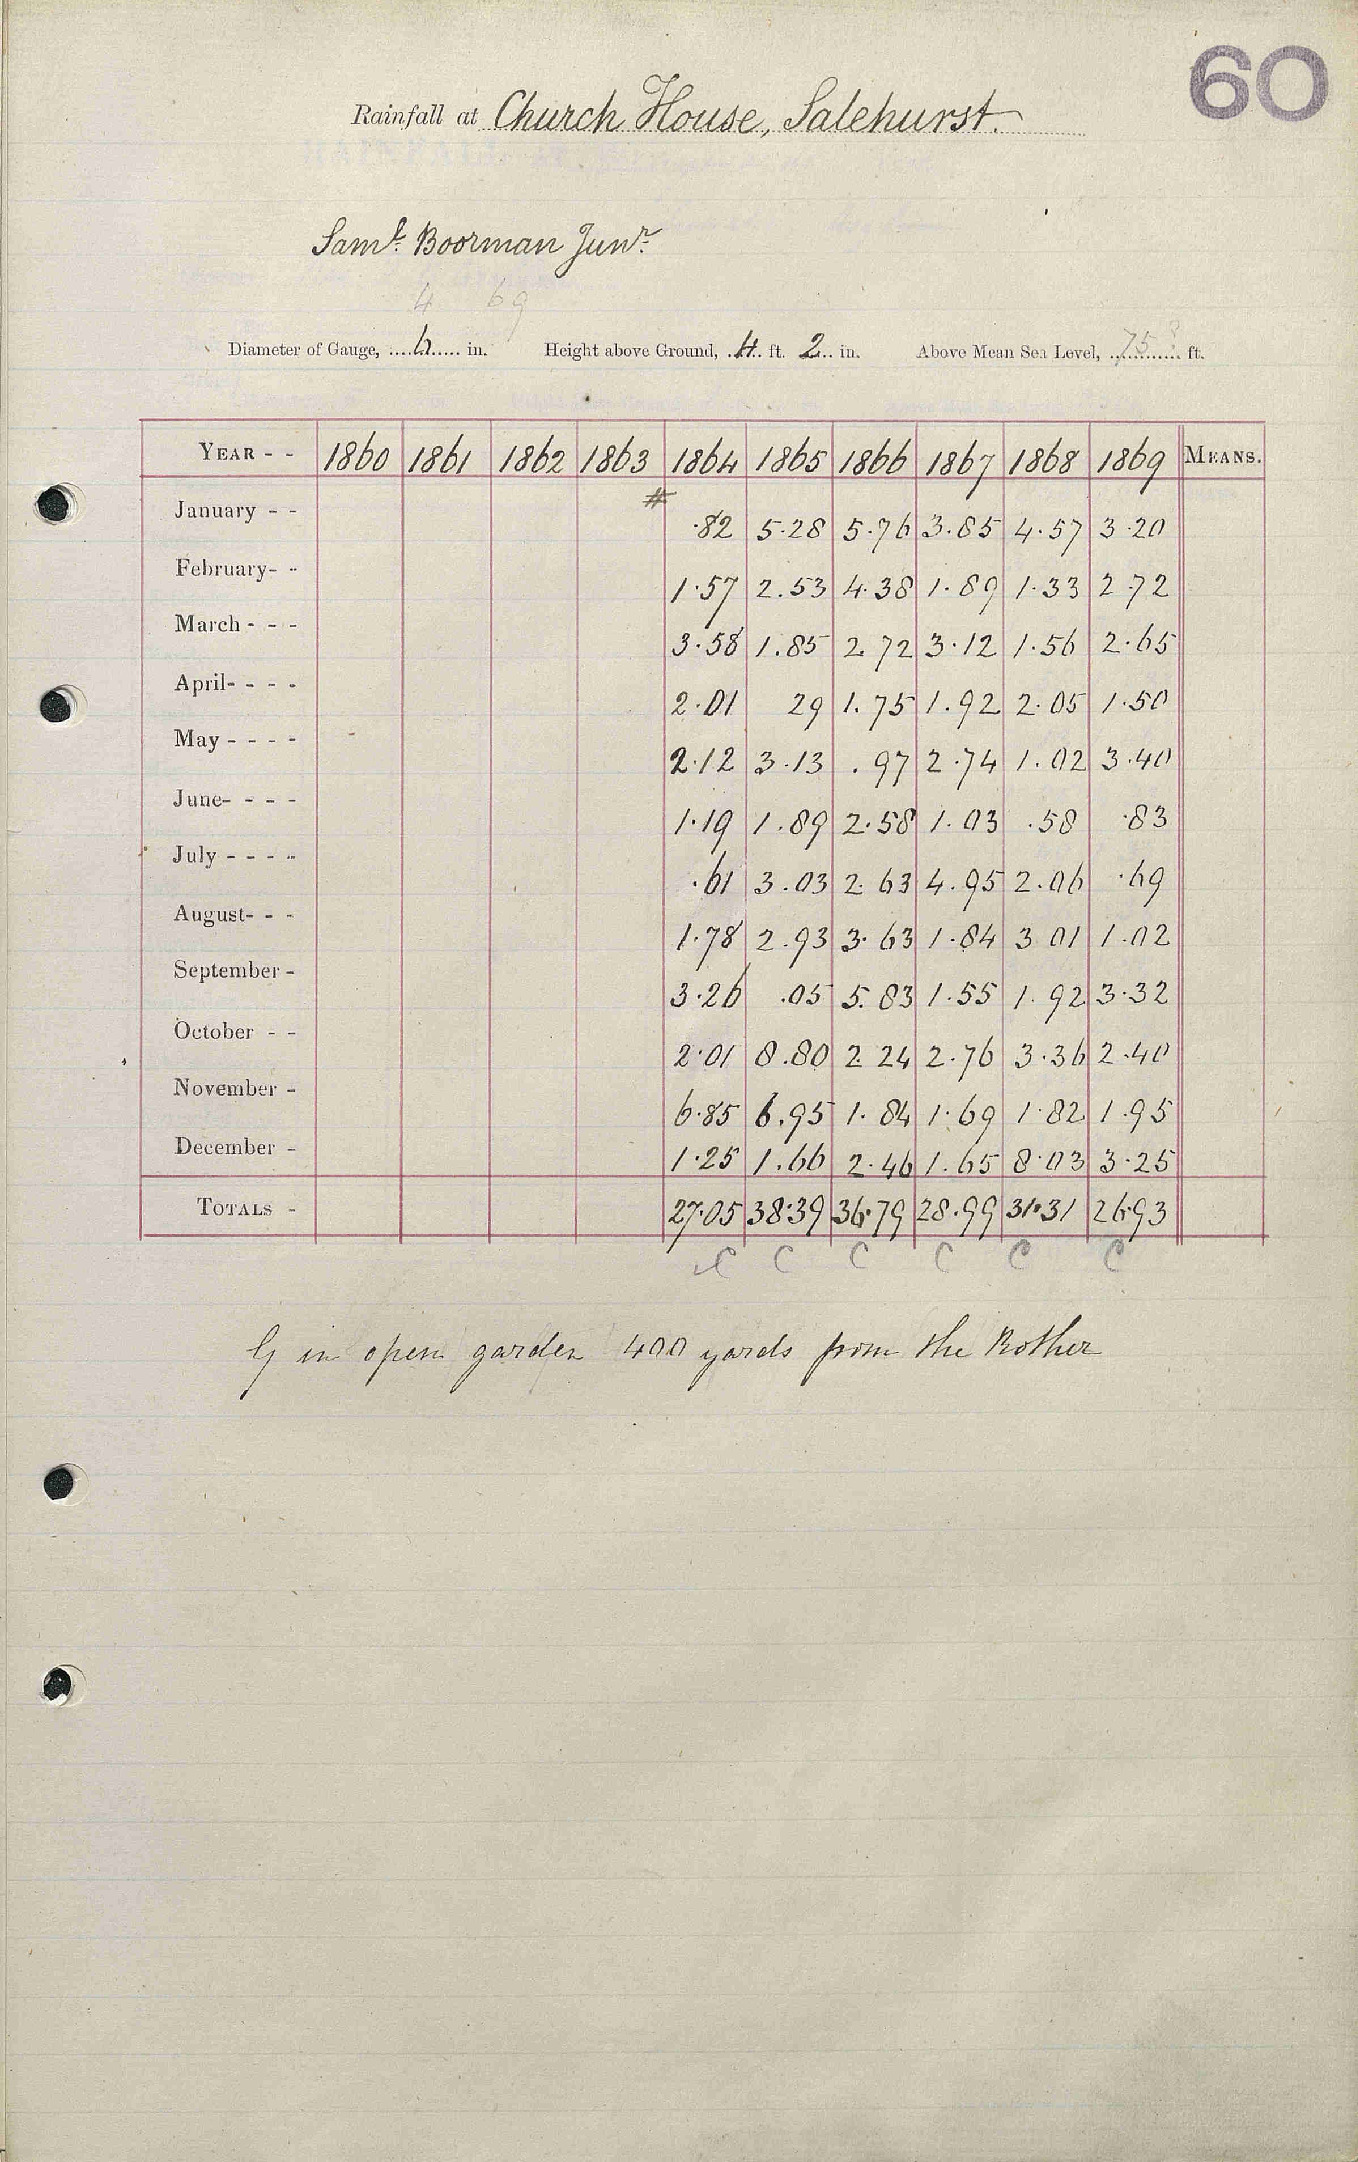 60
Rainfall at Church House, Salehurst.
Saml. Boorman Junr.
4 69
Diameter of Gauge, ....... in. Height above Ground, 4 ft. 2 in. Above Mean Sea Level, 75? ft.
YEAR - - 1860 1861 1862 1863 1864 1865 1866 1867 1868 1869 MEANS.
#
January - - ·82 5·28 5·76 3.85 4·57 3·20
February- - 1·57 2.53 4·38 1·89 1·33 2·72
March - - - 3·58 1.85 2.72 3·12 1·56 2·65
April- - - - 2·01 29 1.75 1.92 2·05 1·50
May - - - - 2·12 3·13 .97 2·74 1·02 3·40
June- - - - 1·19 1.89 2·58 1·03 ·58 ·83
July - - - - ·61 3·03 2.63 4.95 2·06 ·69
August- - - 1·78 2.93 3·63 1·84 3 01 1·02
September - 3·26 .05 5.83 1·55 1.92 3·32
October - - 2·01 8.80 2 24 2·76 3·36 2·40
November - 6·85 6.95 1·84 1·69 1·82 1·95
December - 1·25 1.66 2·46 1.65 8·03 3·25
TOTALS - 27·05 38·39 36·79 28·99 31·31 26·93
C C C C C C
G in open garden 400 yards from the Rother